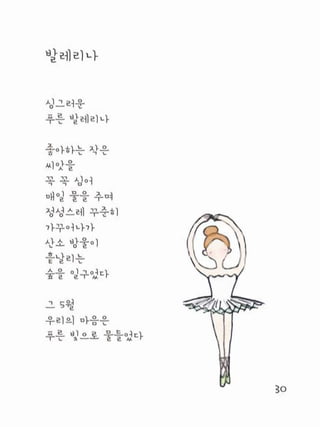 발레리나
싱그러운
푸른 발레리나
좋아하는 작은
씨앗을
꼭 꼭 심어
매일 물을 주며
정성스레 꾸준히
가꾸어나가
산소 방울이
흩날리는
숲을 일구었다
그 5월
우리의 마음은
푸른 빛으로 물들었다
30